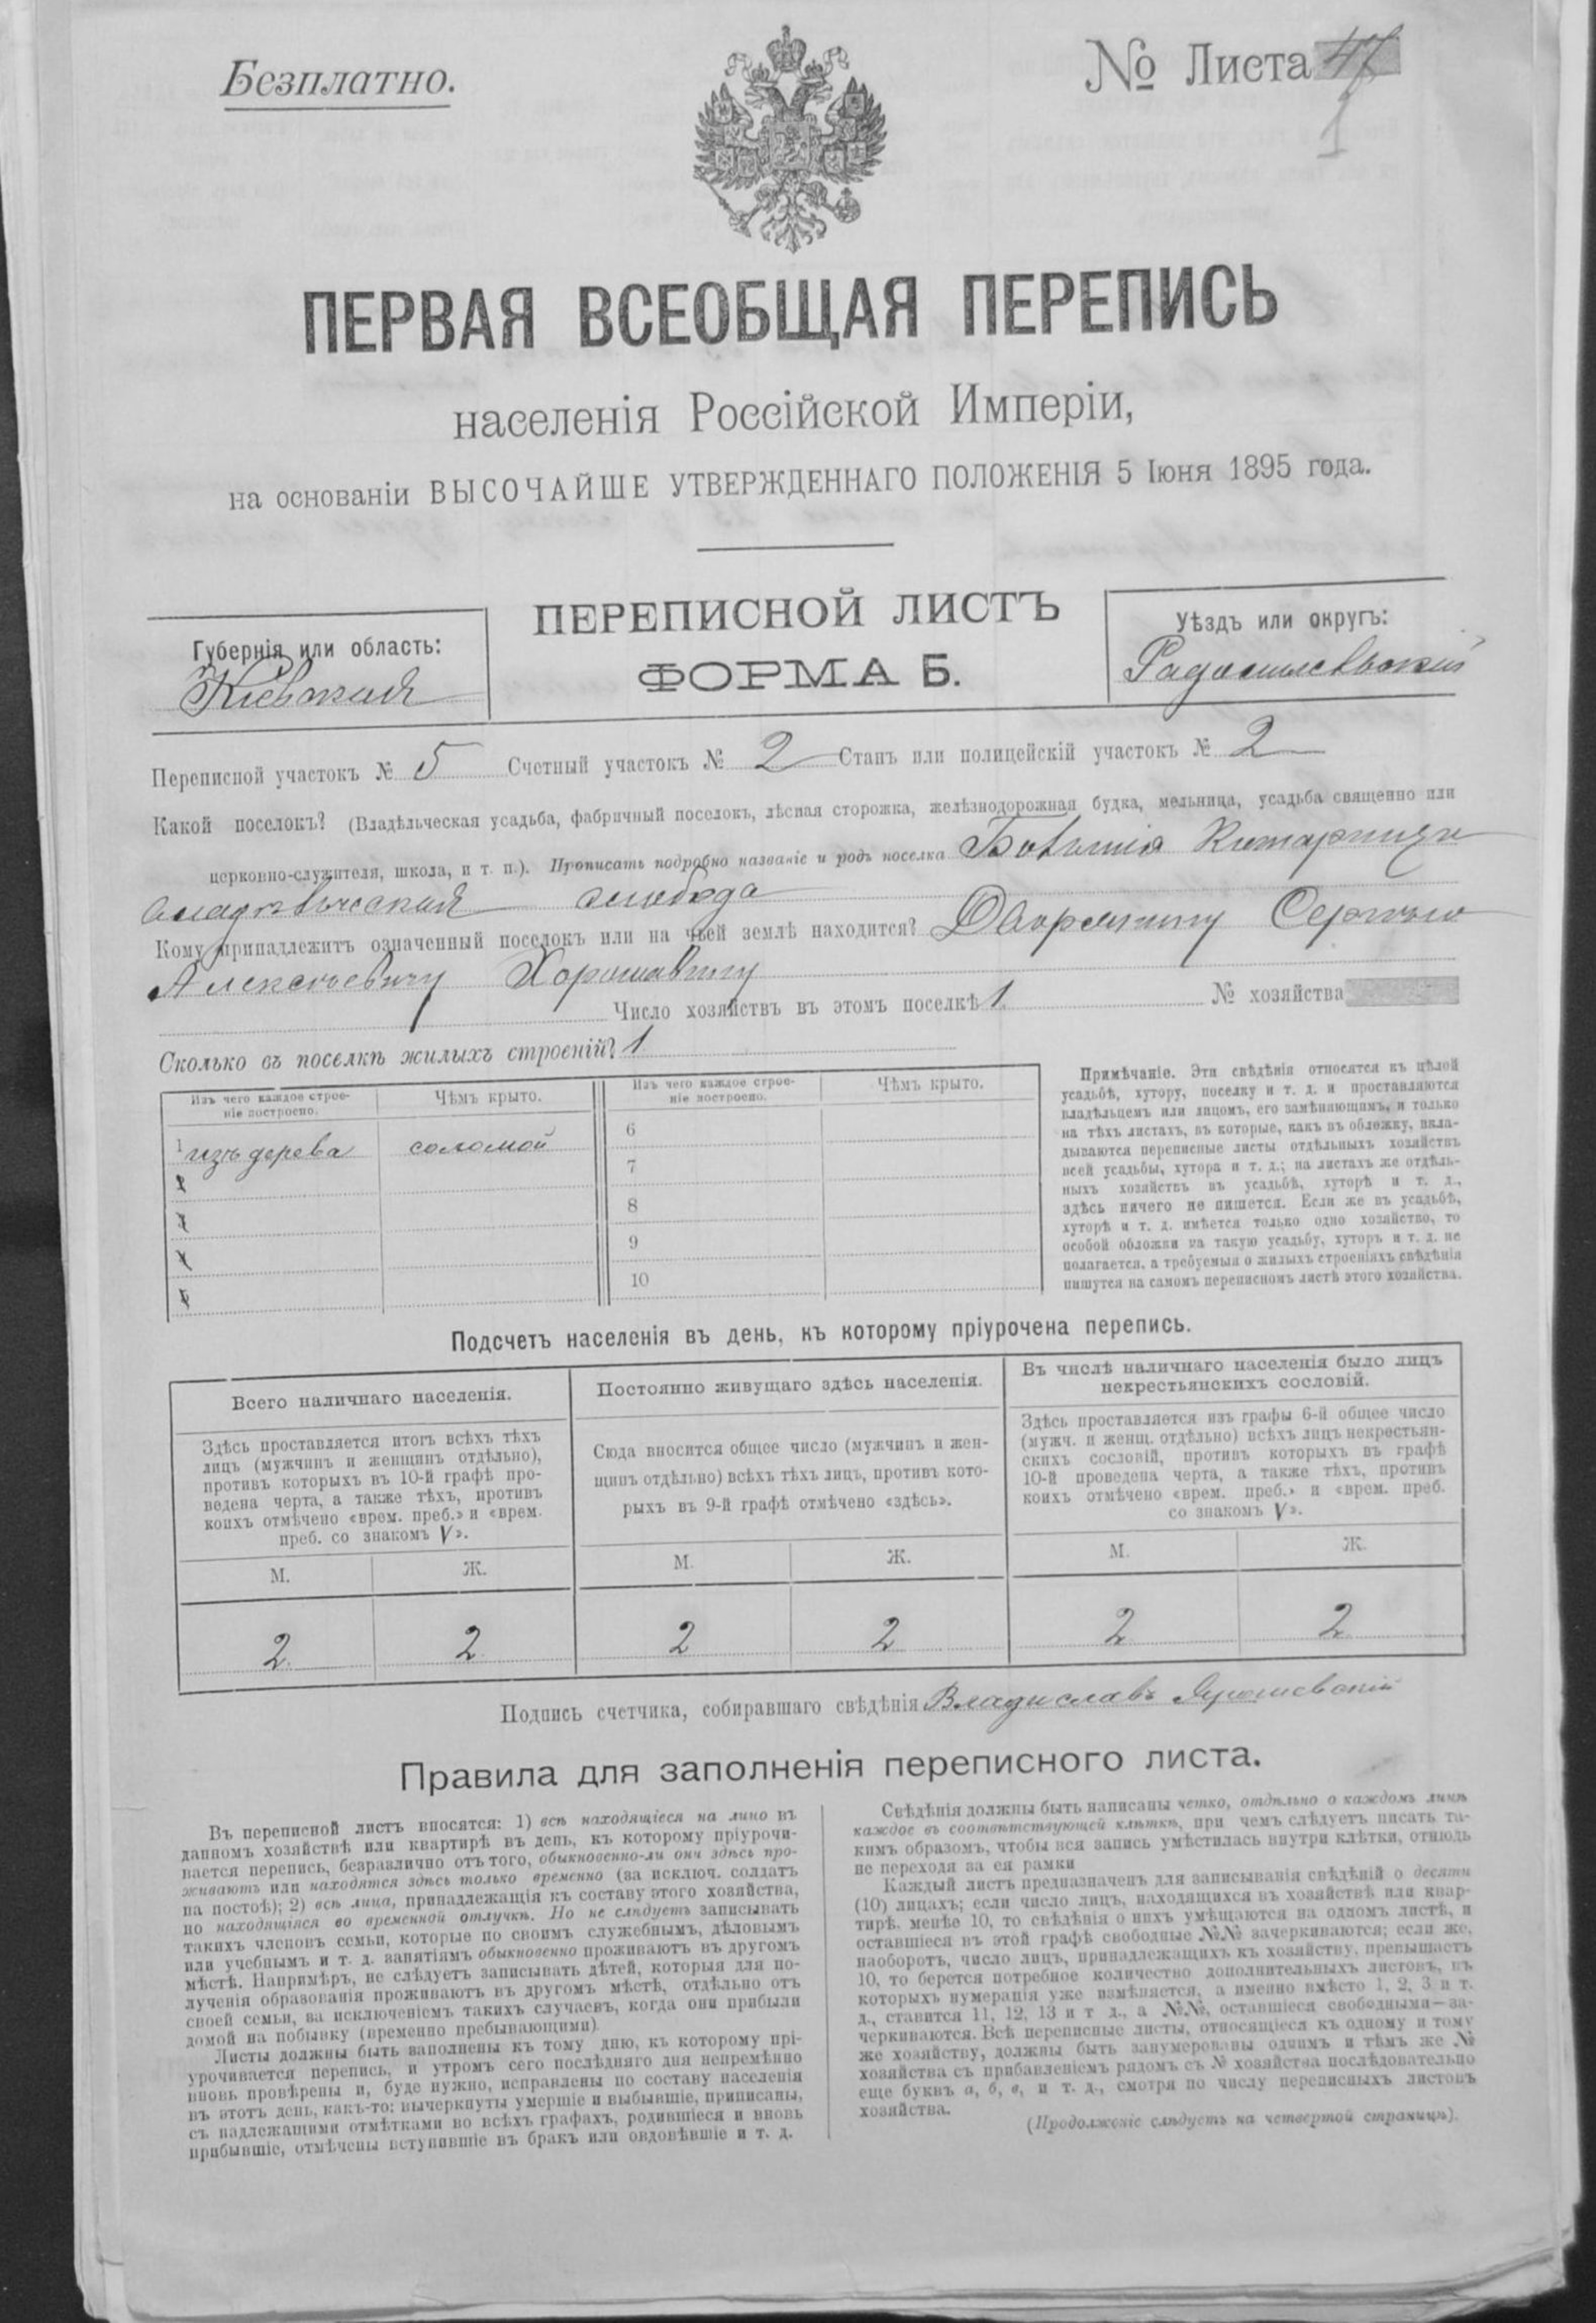 Безплатно.
№ Листа
1
ПЕРВАЯ ВСЕОБЩАЯ ПЕРЕПИСЬ
населенія Россійской Имперіи,
на основаніи ВЫСОЧАЙШЕ УТВЕРЖДЕННАГО ПОЛОЖЕНІЯ 5 Іюня 1895 года.
ПЕРЕПИСНОЙ ЛИСТЪ
ФОРМА Б.
Губернія или область:
Кіевская
Уѣздъ или округъ:
Радомысльскій
Переписной участокъ № 5 Счетный участокъ № 2 Станъ или полицейскій участокъ № 2
Какой поселокъ? (Владѣльческая усадьба, фабричный поселокъ, лѣсная сторожка, желѣзнодорожная будка, мельница, усадьба священно или
церковно-служителя, школа, и т. п.). Прописать подробно названіе и родъ поселка
слобода
Кому принадлежитъ означенный поселокъ или на чьей землѣ находится? Дворянину Сергѣю
Алексѣевичу Хорошавину
Число хозяйствъ въ этомъ поселкѣ 1 № хозяйства
Сколько въ поселкѣ жилыхъ строеній? 1
Изъ чего каждое строе-
ніе построено.
Чѣмъ крыто.
Изъ чего каждое строе-
ніе построено.
Чѣмъ крыто.
1 изъ дерева соломой
6
7
8
9
10
Примѣчаніе. Эти свѣдѣнія относятся къ цѣлой
усадьбѣ, хутору, поселку и т. д. и проставляются
владѣльцемъ или лицомъ, его замѣняющимъ, и только
на тѣхъ листахъ, въ которые, какъ въ обложку, вкла-
дываются переписные листы отдѣльныхъ хозяйствъ
всей усадьбы, хутора и т. д.; на листахъ же отдѣль-
ныхъ хозяйствъ въ усадьбѣ, хуторѣ и т. д.,
здѣсь ничего не пишется. Если же въ усадьбѣ,
хуторѣ и т. д. имѣется только одно хозяйство, то
особой обложки на такую усадьбу, хуторъ и т. д. не
полагается, а требуемыя о жилыхъ строеніяхъ свѣдѣнія
пишутся на самомъ переписномъ листѣ этого хозяйства.
Подсчетъ населенія въ день, къ которому пріурочена перепись.
Всего наличнаго населенія.
Здѣсь проставляется итогъ всѣхъ тѣхъ
лицъ (мужчинъ и женщинъ отдѣльно),
противъ которыхъ въ 10-й графѣ про-
ведена черта, а также тѣхъ, противъ
коихъ отмѣчено «врем. преб.» и «врем.
преб. со знакомъ V».
М. Ж.
2 2
Постоянно живущаго здѣсь населенія.
Сюда вносится общее число (мужчинъ и жен-
щинъ отдѣльно) всѣхъ тѣхъ лицъ, противъ кото-
рыхъ въ 9-й графѣ отмѣчено «здѣсь».
М. Ж.
2 2
Въ числѣ наличнаго населенія было лицъ
некрестьянскихъ сословій.
Здѣсь проставляется изъ графы 6-й общее число
(мужч. и женщ. отдѣльно) всѣхъ лицъ некрестьян-
скихъ сословій, противъ которыхъ въ графѣ
10-й проведена черта, а также тѣхъ, противъ
коихъ отмѣчено «врем. преб.» и «врем. преб.
со знакомъ V».
М. Ж.
2 2
Подпись счетчика, собиравшаго свѣдѣнія Владиславъ Ярошевскій
Правила для заполненія переписного листа.
Въ переписной листъ вносятся: 1) всѣ находящіеся на лицо въ
данномъ хозяйствѣ или квартирѣ въ день, къ которому пріурочи-
вается перепись, безразлично отъ того, обыкновенно-ли они здѣсь про-
живаютъ или находятся здѣсь только временно (за исключ. солдатъ
на постоѣ); 2) всѣ лица, принадлежащія къ составу этого хозяйства,
но находящіяся во временной отлучкѣ. Но не слѣдуетъ записывать
такихъ членовъ семьи, которые по своимъ служебнымъ, дѣловымъ
или учебнымъ и т. д. занятіямъ обыкновенно проживаютъ въ другомъ
мѣстѣ. Напримѣръ, не слѣдуетъ записывать дѣтей, которыя для по-
лученія образованія проживаютъ въ другомъ мѣстѣ, отдѣльно отъ
своей семьи, за исключеніемъ такихъ случаевъ, когда они прибыли
домой на побывку (временно пребывающими).
Листы должны быть заполнены къ тому дню, къ которому прі-
урочивается перепись, и утромъ сего послѣдняго дня непремѣнно
вновь провѣрены и, буде нужно, исправлены по составу населенія
въ этотъ день, какъ-то: вычеркнуты умершіе и выбывшіе, приписаны,
съ надлежащими отмѣтками во всѣхъ графахъ, родившіеся и вновь
прибывшіе, отмѣчены вступившіе въ бракъ или овдовѣвшіе и т. д.
Свѣдѣнія должны быть написаны четко, отдѣльно о каждомъ лицѣ
каждое въ соотвѣтствующей клѣткѣ, при чемъ слѣдуетъ писать та-
кимъ образомъ, чтобы вся запись умѣстилась внутри клѣтки, отнюдь
не переходя за ея рамки
Каждый листъ предназначенъ для записыванія свѣдѣній о десяти
(10) лицахъ; если число лицъ, находящихся въ хозяйствѣ или квар-
тирѣ, менѣе 10, то свѣдѣнія о нихъ умѣщаются на одномъ листѣ, и
оставшіеся въ этой графѣ свободные №№ зачеркиваются; если же,
наоборотъ, число лицъ, принадлежащихъ къ хозяйству, превышаетъ
10, то берется потребное количество дополнительныхъ листовъ, въ
которыхъ нумерація уже измѣняется, а именно вмѣсто 1, 2, 3 и т.
д., ставится 11, 12, 13 и т д., а №№, оставшіеся свободными—за-
черкиваются. Всѣ переписные листы, относящіеся къ одному и тому
же хозяйству, должны быть занумерованы однимъ и тѣмъ же №
хозяйства съ прибавленіемъ рядомъ съ № хозяйства послѣдовательно
еще буквъ а, б, в, и т. д., смотря по числу переписныхъ листовъ
хозяйства.
(Продолженіе слѣдуетъ на четвертой страницѣ).